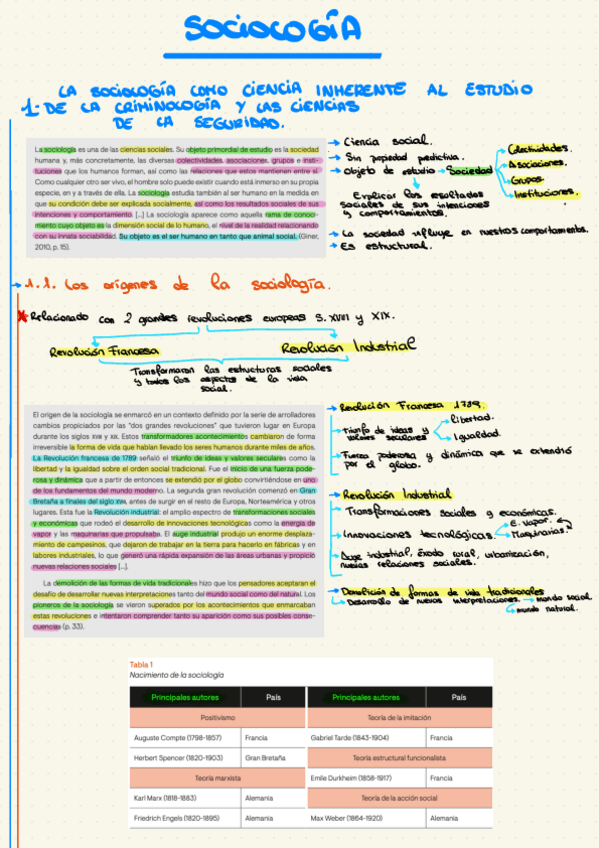 SOCIOLOGÍA
LA SOCIOLOGÍA COMO CIENCIA INHERENTE AL ESTUDIO
1- DE LA CRIMINOLOGÍA Y LAS CIENCIAS
DE LA SEGURIDAD.
La sociología es una de las ciencias sociales. Su objeto primordial de estudio es la sociedad
humana y, más concretamente, las diversas colectividades, asociaciones, grupos e insti-
tuciones que los humanos forman, así como las relaciones que estos mantienen entre sí.
Como cualquier otro ser vivo, el hombre solo puede existir cuando está inmerso en su propia
especie, en y a través de ella. La sociología estudia también al ser humano en la medida en
que su condición debe ser explicada socialmente, así como los resultados sociales de sus
intenciones y comportamiento. [...] La sociología aparece como aquella rama de conoci-
miento cuyo objeto es la dimensión social de lo humano, el nivel de la realidad relacionando
con su innata sociabilidad. Su objeto es el ser humano en tanto que animal social. (Giner,
2010, p. 15).
Ciencia social.
Sin propiedad predictiva.
Objeto de estudio → Sociedad
Colectividades.
Asociaciones.
Grupos.
Instituciones.
Explicar los resultados
sociales de sus intenciones
y comportamientos.
La sociedad influye en nuestros comportamientos.
Es estructural.
1.1. Los orígenes de la sociología.
Relacionado con 2 grandes revoluciones europeas S. XVIII y XIX.
Revolución Francesa
Revolución Industrial
Transformaron las estructuras sociales
y todos los aspectos de la vida
social.
El origen de la sociología se enmarcó en un contexto definido por la serie de arrolladores
cambios propiciados por las "dos grandes revoluciones" que tuvieron lugar en Europa
durante los siglos XVIII y XIX. Estos transformadores acontecimientos cambiaron de forma
irreversible la forma de vida que habían llevado los seres humanos durante miles de años.
La Revolución francesa de 1789 señaló el triunfo de ideas y valores seculares como la
libertad y la igualdad sobre el orden social tradicional. Fue el inicio de una fuerza pode-
rosa y dinámica que a partir de entonces se extendió por el globo convirtiéndose en uno
de los fundamentos del mundo moderno. La segunda gran revolución comenzó en Gran
Bretaña a finales del siglo XVIII, antes de surgir en el resto de Europa, Norteamérica y otros
lugares. Esta fue la Revolución industrial: el amplio espectro de transformaciones sociales
y económicas que rodeó el desarrollo de innovaciones tecnológicas como la energía de
vapor y las maquinarias que propulsaba. El auge industrial produjo un enorme desplaza-
miento de campesinos, que dejaron de trabajar en la tierra para hacerlo en fábricas y en
labores industriales, lo que generó una rápida expansión de las áreas urbanas y propició
nuevas relaciones sociales [...].
La demolición de las formas de vida tradicionales hizo que los pensadores aceptaran el
desafío de desarrollar nuevas interpretaciones tanto del mundo social como del natural. Los
pioneros de la sociología se vieron superados por los acontecimientos que enmarcaban
estas revoluciones e intentaron comprender tanto su aparición como sus posibles conse-
cuencias (p. 33).
Revolución Francesa 1789.
Triunfo de ideas y
valores seculares
libertad.
Igualdad.
Fuerza poderosa y dinámica que se extendió
por el globo.
Revolución Industrial
Transformaciones sociales y económicas.
Innovaciones tecnológicas
E. vapor.
Maquinarias.
Auge industrial, éxodo rural, urbanización,
nuevas relaciones sociales.
Demolición de formas de vida tradicionales
Desarrollo de nuevas interpretaciones. → mundo social
mundo natural.
Tabla 1
Nacimiento de la sociología
Principales autores País Principales autores País
Positivismo Teoría de la imitación
Auguste Compte (1798-1857) Francia Gabriel Tarde (1843-1904) Francia
Herbert Spencer (1820-1903) Gran Bretaña Teoría estructural funcionalista
Teoría marxista Emile Durkheim (1858-1917) Francia
Karl Marx (1818-1883) Alemania Teoría de la acción social
Friedrich Engels (1820-1895) Alemania Max Weber (1864-1920) Alemania